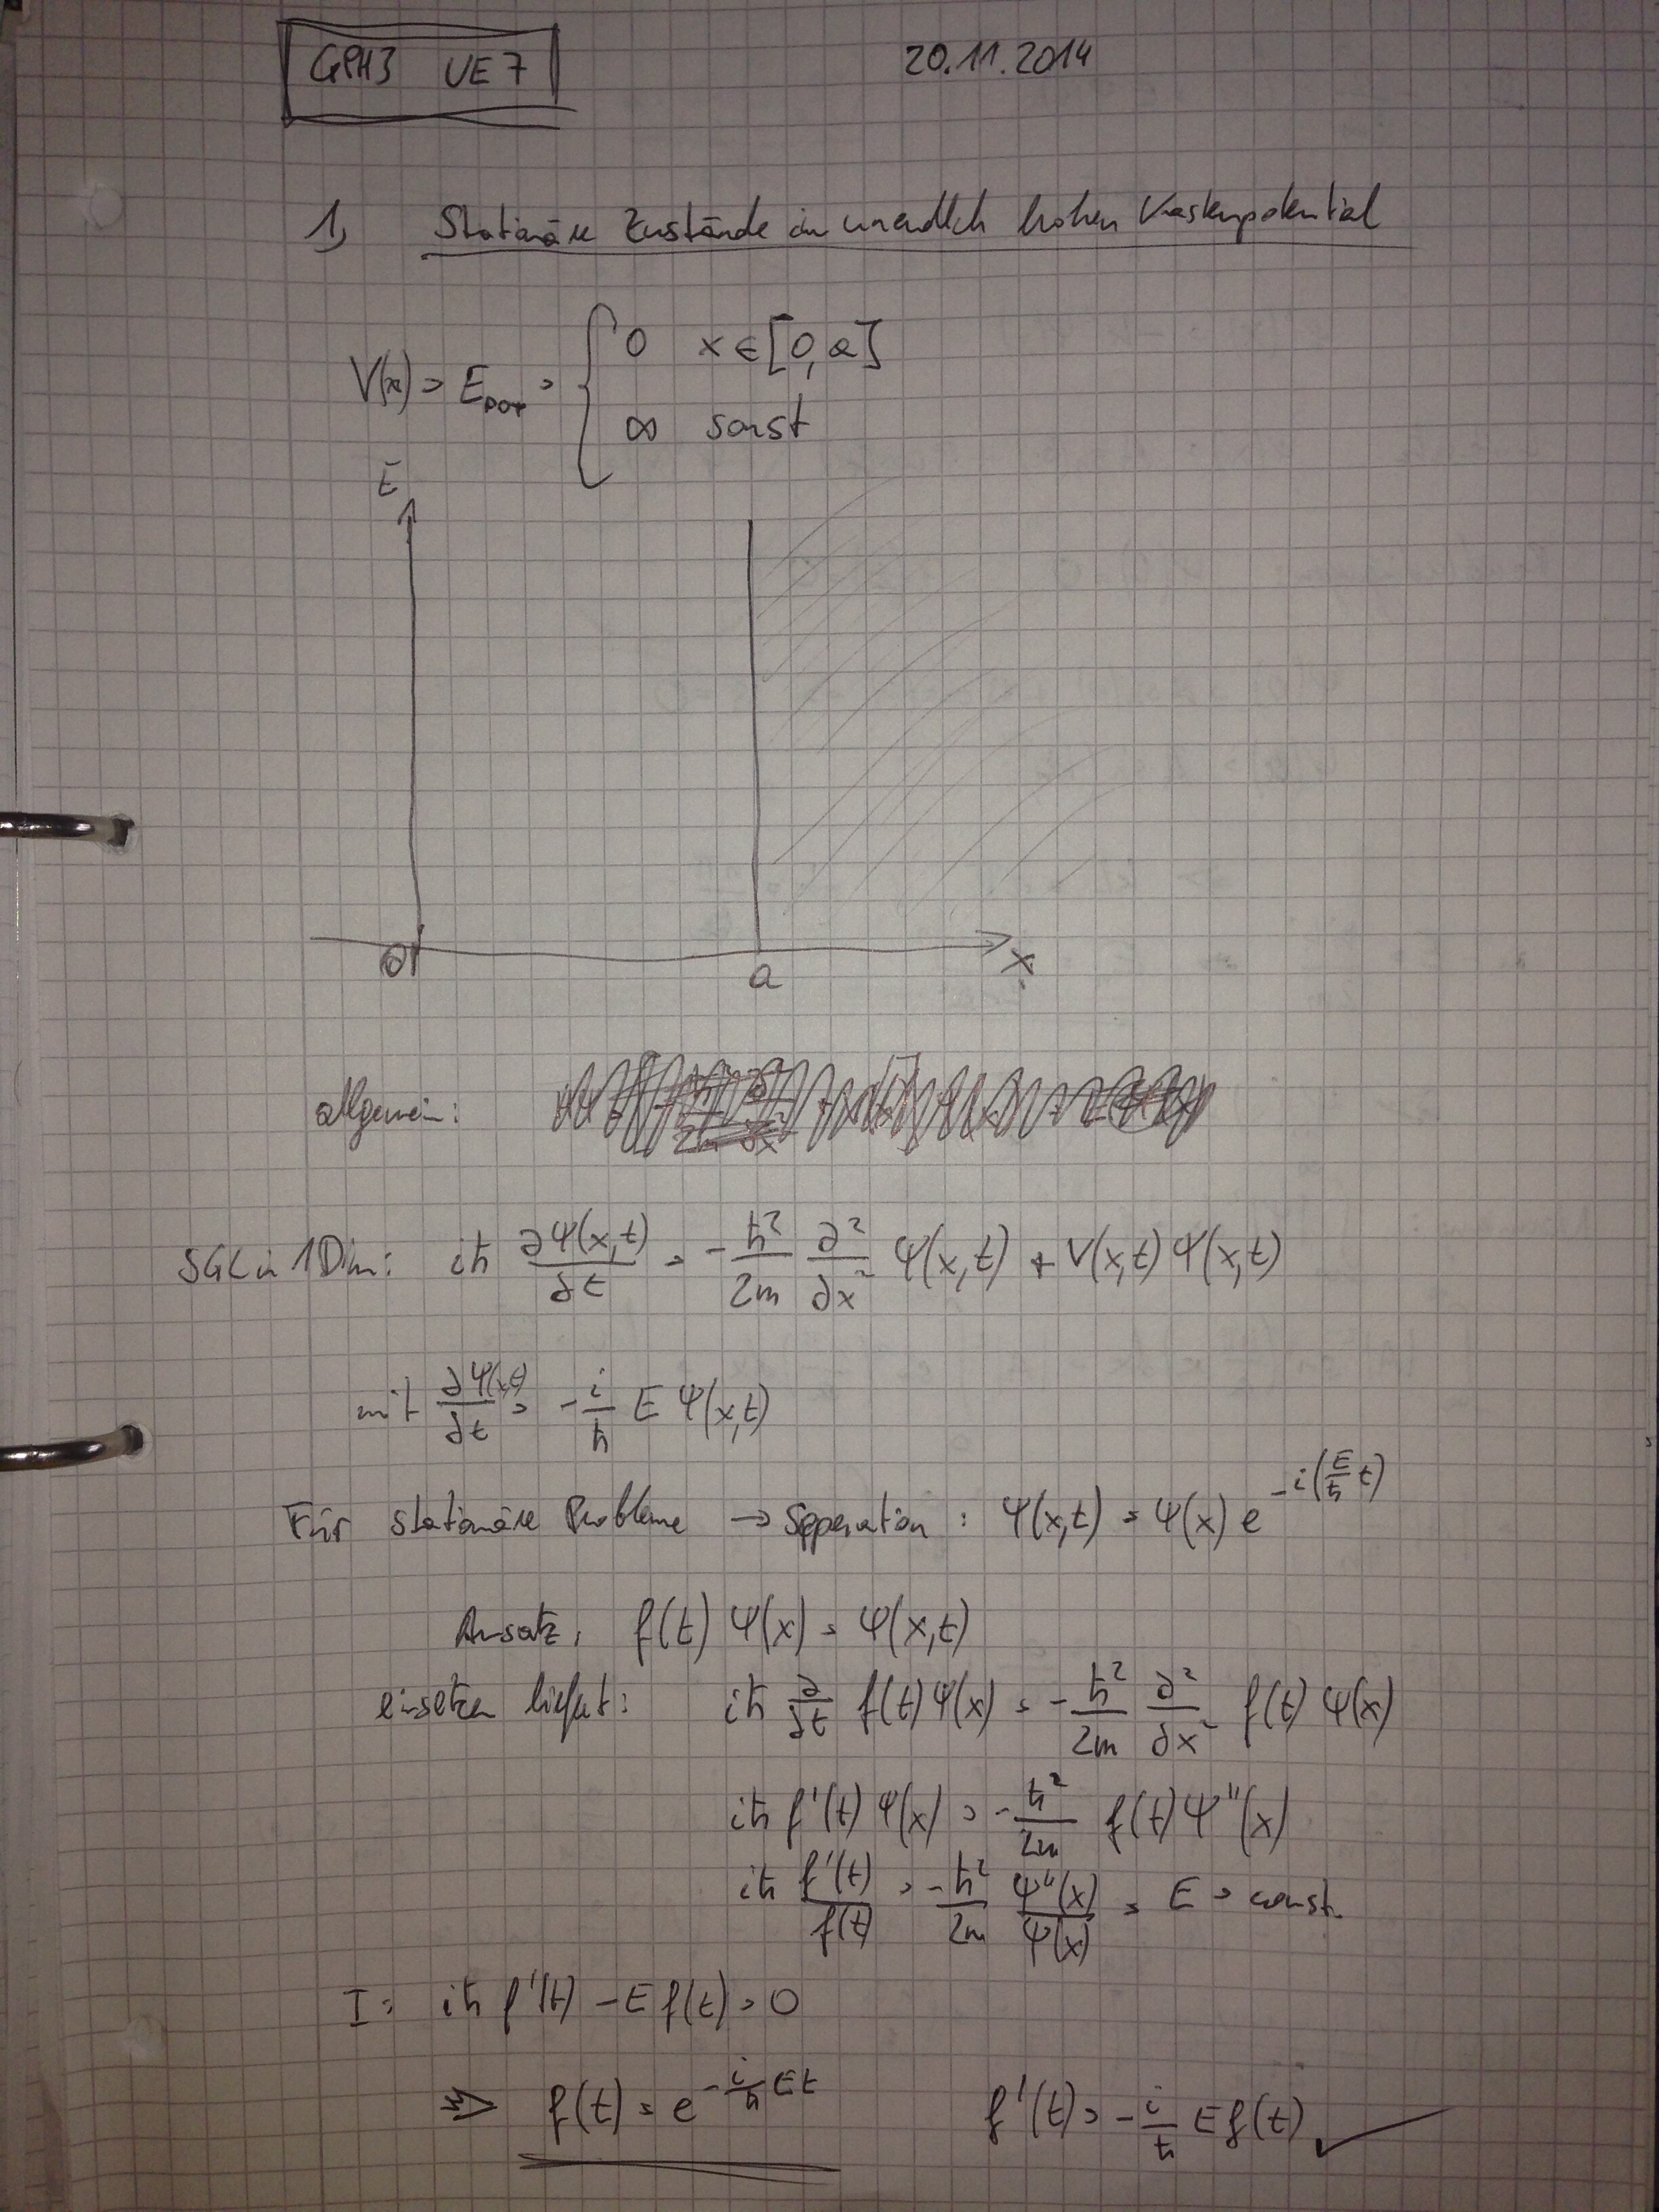 GPH3 UE7
20.11.2014
1, Stationäre Zustände im unendlich hohen Kastenpotential
V(x) = E_pot = { 0 x ∈ [0,a]
∞ sonst
E
0 a x
allgemein:
SGL in 1Dim: iħ ∂Ψ(x,t)/∂t = -ħ²/2m ∂²/∂x² Ψ(x,t) + V(x,t) Ψ(x,t)
mit ∂Ψ(x,t)/∂t = -i/ħ E Ψ(x,t)
Für stationäre Probleme → Sepperation : Ψ(x,t) = Ψ(x) e^{-i(E/ħ t)}
Ansatz: f(t) Ψ(x) = Ψ(x,t)
einsetzen liefert: iħ ∂/∂t f(t) Ψ(x) = -ħ²/2m ∂²/∂x² f(t) Ψ(x)
iħ f'(t) Ψ(x) = -ħ²/2m f(t) Ψ''(x)
iħ f'(t)/f(t) = -ħ²/2m Ψ''(x)/Ψ(x) = E = const.
I: iħ f'(t) - E f(t) = 0
⇒ f(t) = e^{-i/ħ Et} f'(t) = -i/ħ E f(t) ✓